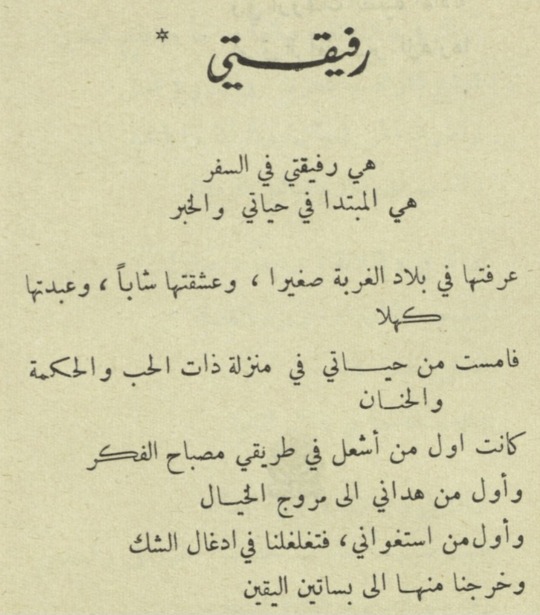 رفيقتي *
هي رفيقتي في السفر
هي المبتدا في حياتي والخبر
عرفتها في بلاد الغربة صغيرا ، وعشقتها شاباً ، وعبدتها
كهلا
فامست من حياتي في منزلة ذات الحب والحكمة
والحنان
كانت اول من أشعل في طريقي مصباح الفكر
وأول من هداني الى مروج الخيال
وأول من استغواني ، فتغلغلنا في ادغال الشك
وخرجنا منها الى بساتين اليقين